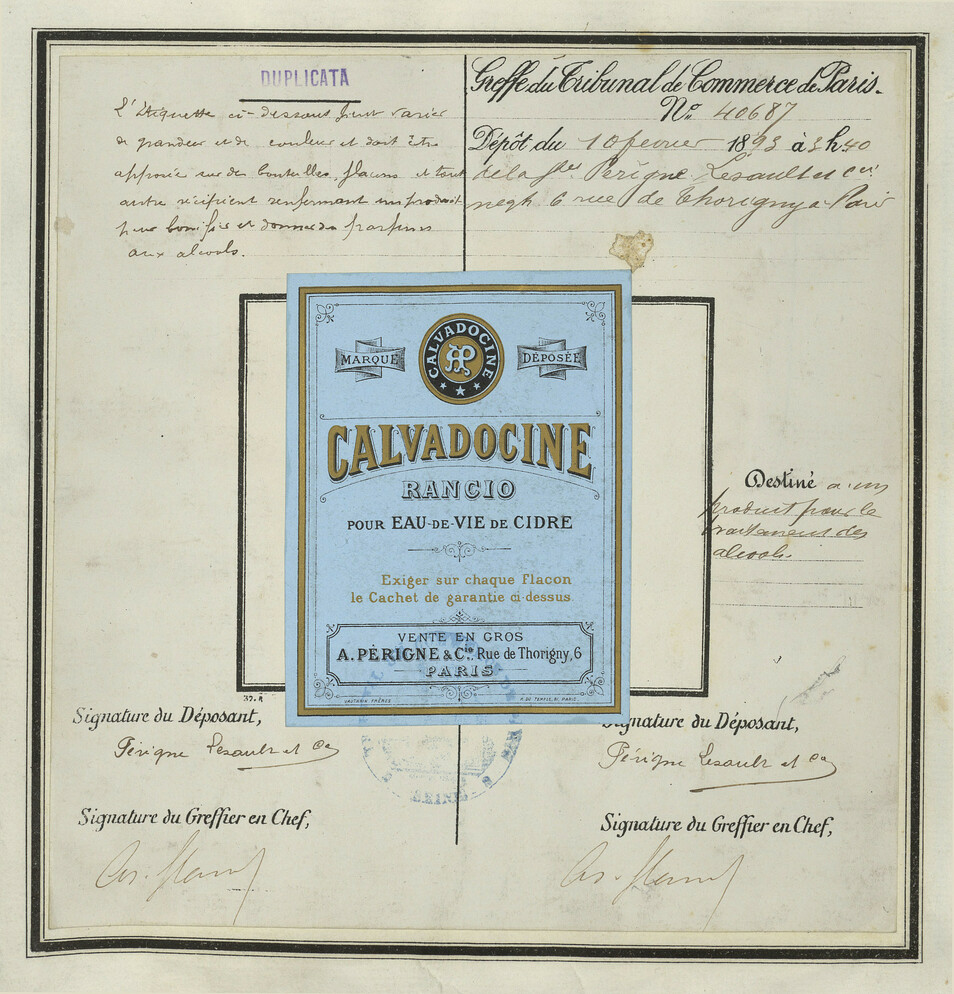 DUPLICATA
L'Etiquette ci-dessous peut varier
de grandeur et de couleur et doit être
apposée sur des bouteilles, flacons et tout
autre récipient renfermant un produit
pour bonifier et donner du parfum
aux alcools.
Greffe du Tribunal de Commerce de Paris.
No. 40687
Dépôt du 10 fevrier 1893 à 3 h 40
de la Sté Périgne, Lesault et Cie
negts 6 rue de Thorigny a Paris
CALVADOCINE
AP
MARQUE DÉPOSÉE
CALVADOCINE
RANCIO
POUR EAU-DE-VIE DE CIDRE
Exiger sur chaque Flacon
le Cachet de garantie ci-dessus
VENTE EN GROS
A. PÉRIGNE & Cie. Rue de Thorigny, 6
PARIS
VAUTHRIN FRÈRES
R. DU TEMPLE, 81, PARIS.
Destiné a un
produit pour le
traitement des
alcools.
Signature du Déposant,
Périgne Lesault et Cie
Signature du Greffier en Chef,
SEINE
Signature du Déposant,
Périgne Lesault et Cie
Signature du Greffier en Chef,